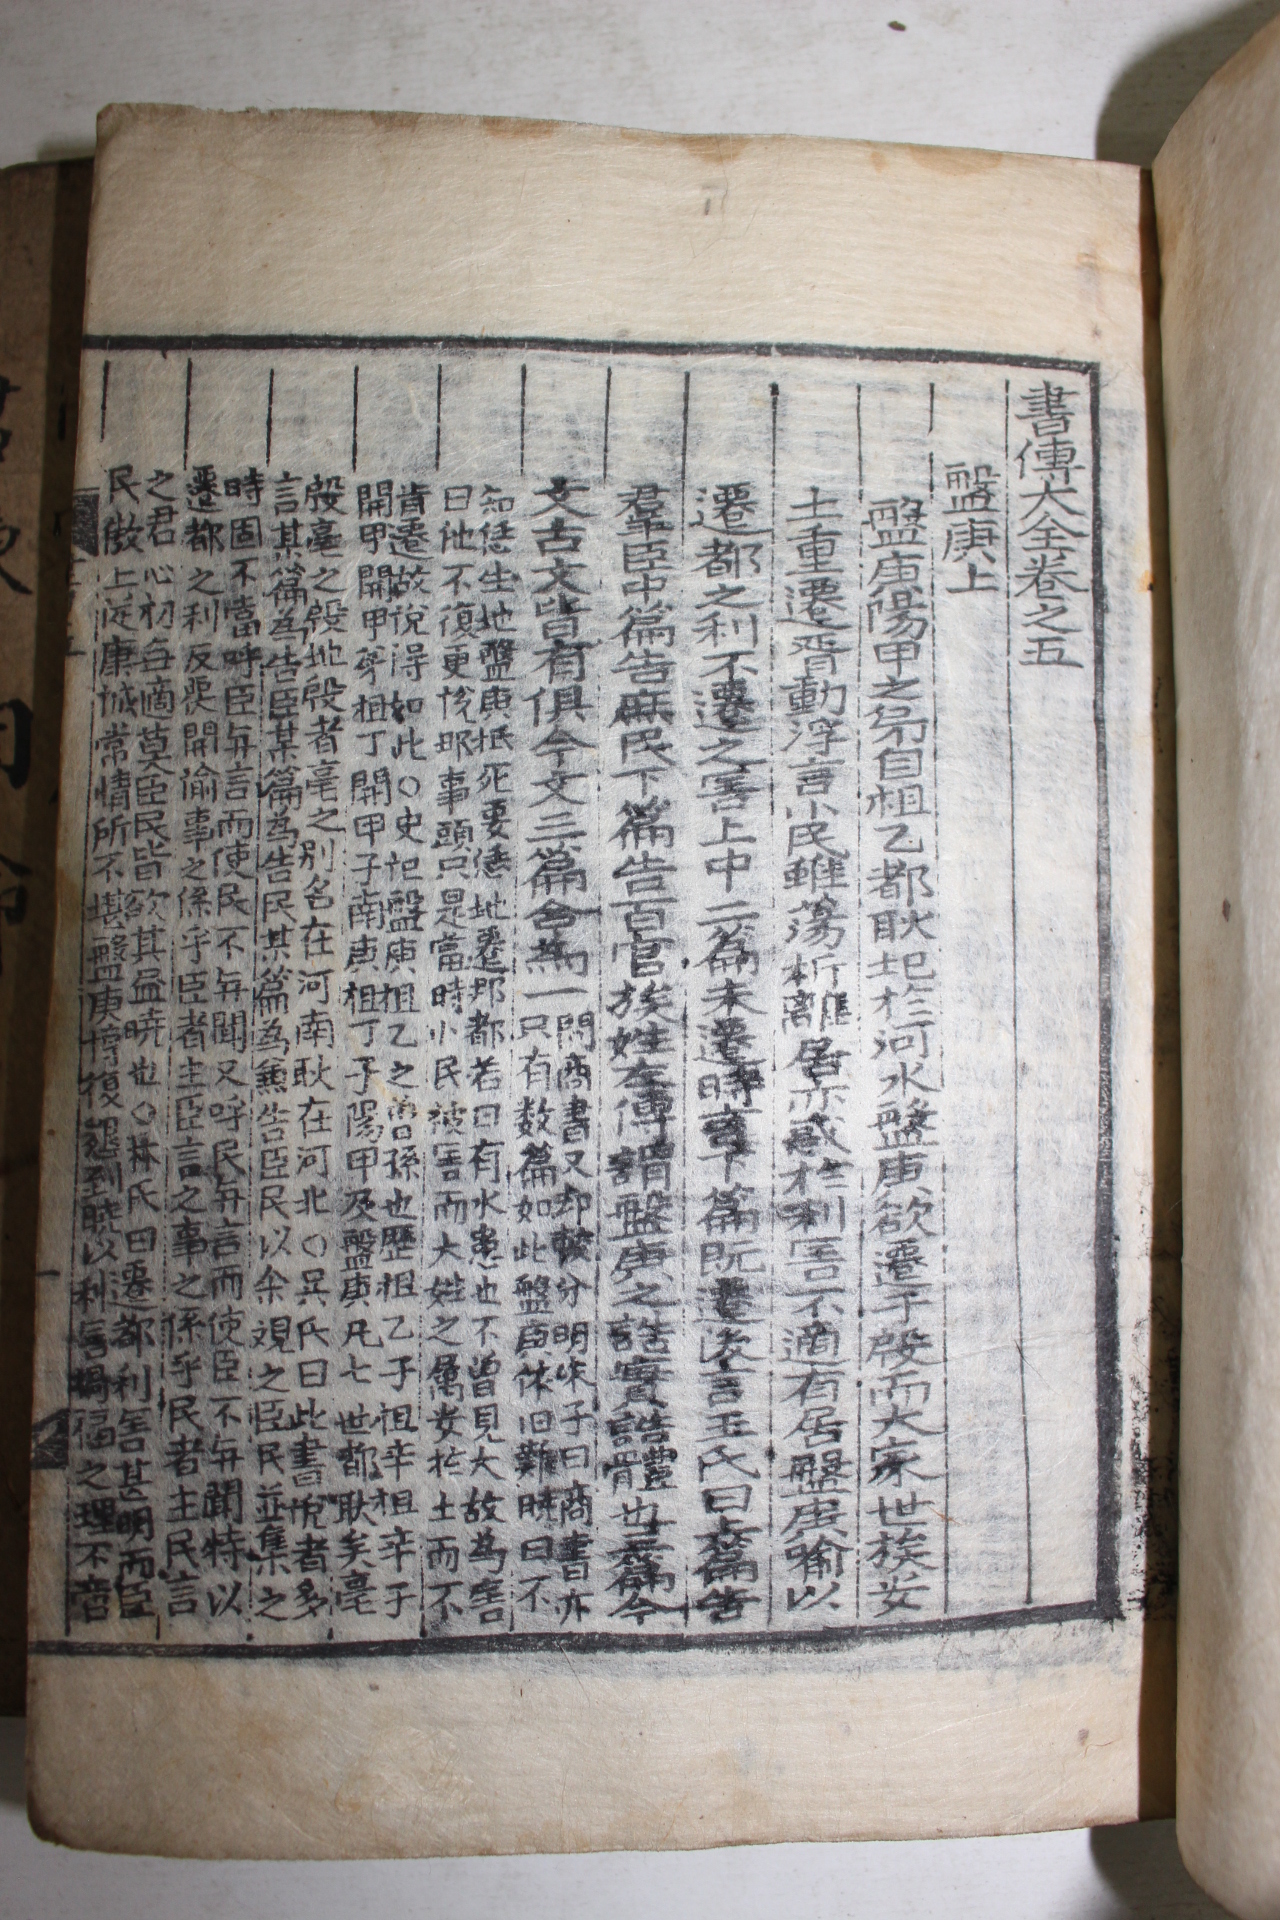 書傳大全卷之五
盤庚上
盤庚陽甲之弟自祖乙都耿圮於河水盤庚欲遷于殷而大家世族安
土重遷胥動浮言小民雖蕩析離居亦惑於利害不適有居盤庚喻以
遷都之利不遷之害上中二篇未遷時言下篇既遷後言王氏曰上篇告
羣臣中篇告庶民下篇告百官族姓左傳謂盤庚之誥實誥體也三篇今
文古文皆有但今文三篇合為一
問商書又却較分明朱子曰商書亦
只有数篇如此盤庚依旧難暁曰不
知怎生地盤庚抵死要恁地遷那都若曰有水患也不曽見大故為害
曰他不復更恱那事頭只是當時小民被害而大姓之屬安於土而不
肯遷故說得如此○史記盤庚祖乙之曽孫也歷祖乙子祖辛祖辛子
開甲開甲弟祖丁開甲子南庚祖丁子陽甲及盤庚凡七世都耿矣亳
殷亳之殷地殷者亳之别名在河南耿在河北○吳氏曰此書恱者多
言某篇為告臣某篇為告民某篇為兼告臣民以余観之臣民並集之
時固不當呼臣与言而使民不与聞又呼民与言而使臣不与聞特以
遷都之利反覆開諭事之係乎臣者主臣言之事之係乎民者主民言
之君心初無適莫臣民皆欲其益暁也○林氏曰遷都利害甚明而臣
民傲上從康城常情所不堪盤庚博復懇到暁以利害禍福之理不啻